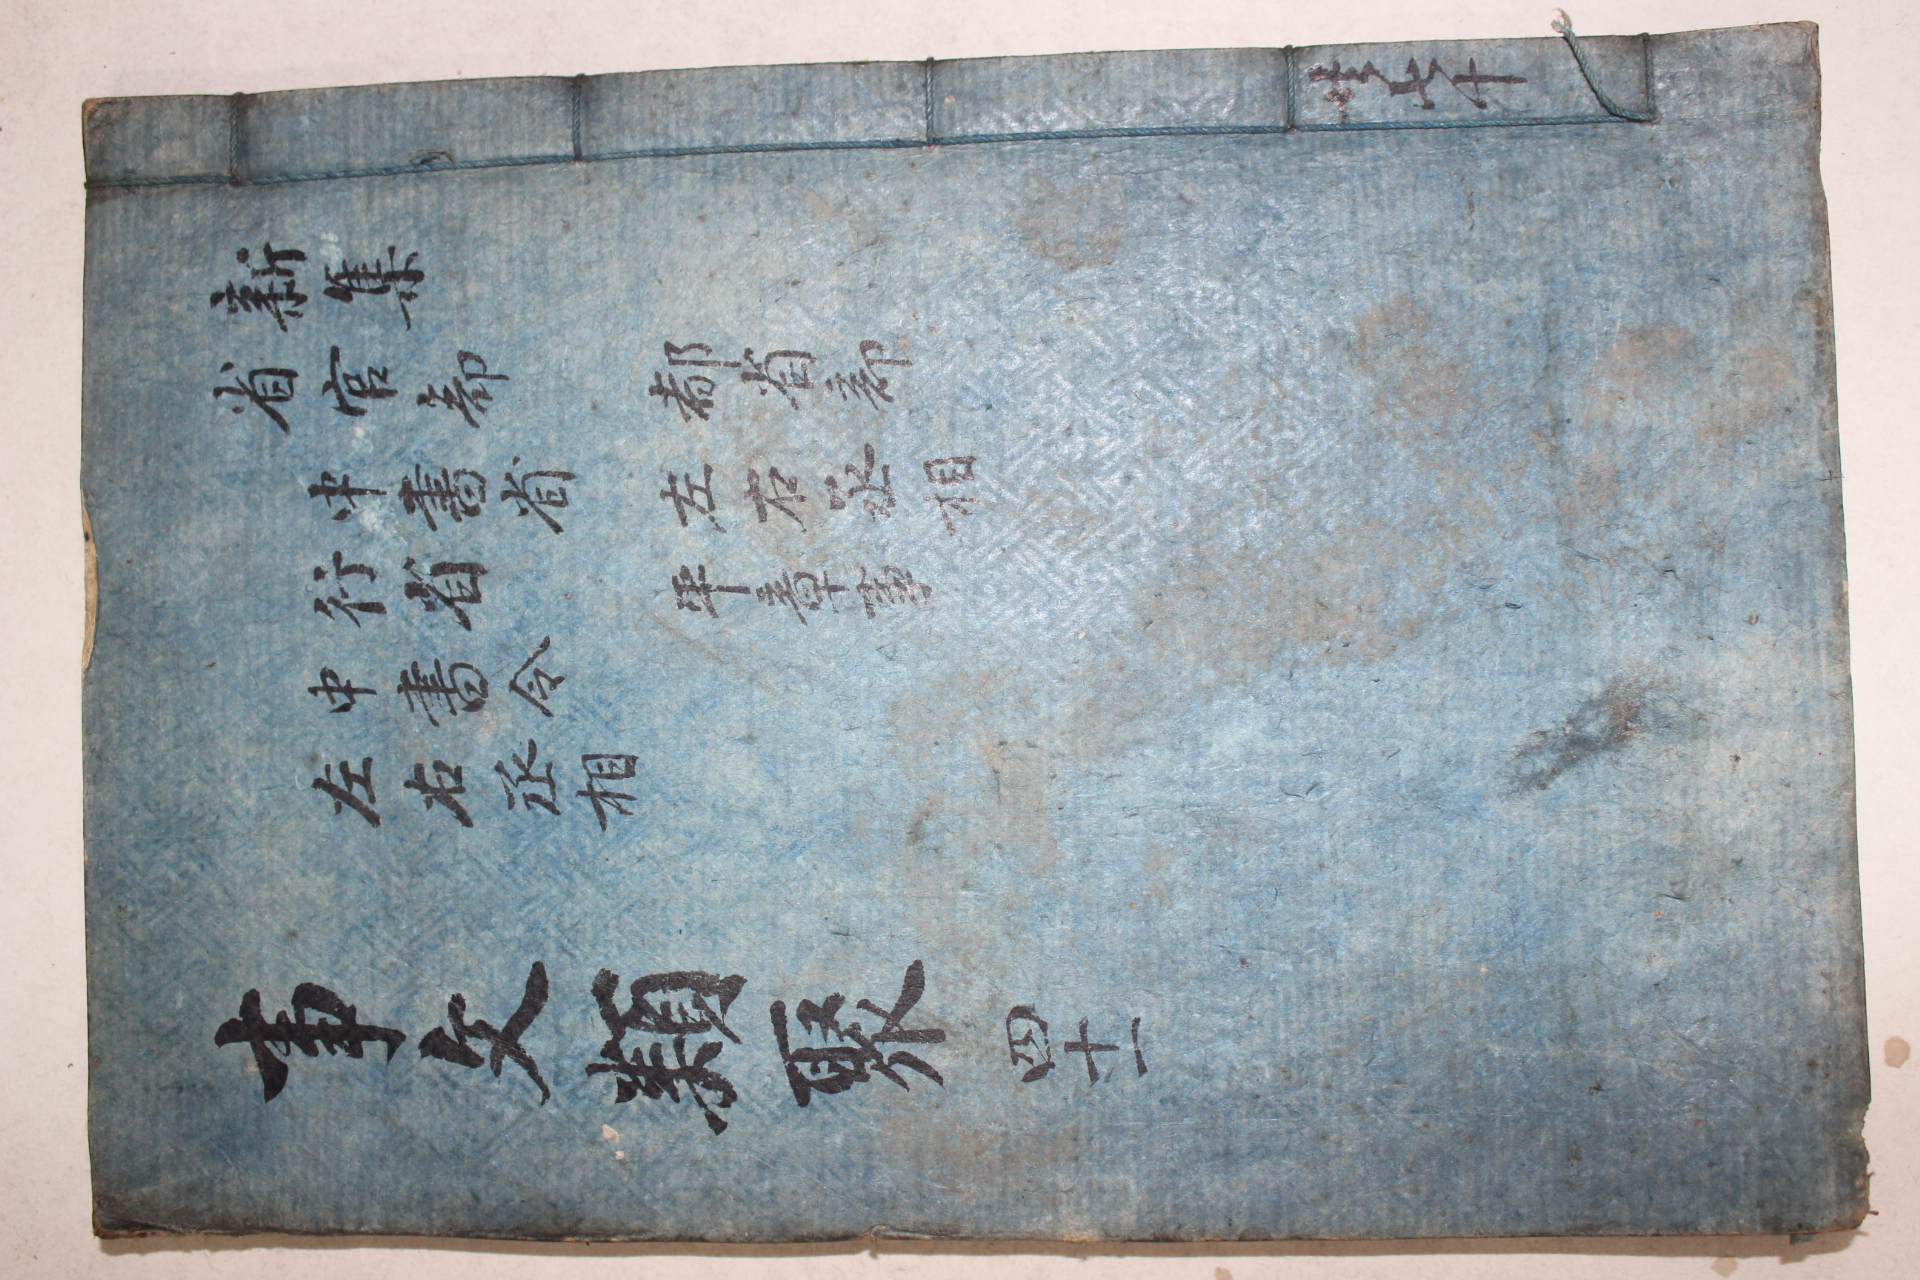 共七十
新集
省官部
都省部
中書省
左右丞相
行省
平章事
中書令
左右丞相
事文類聚 四十一